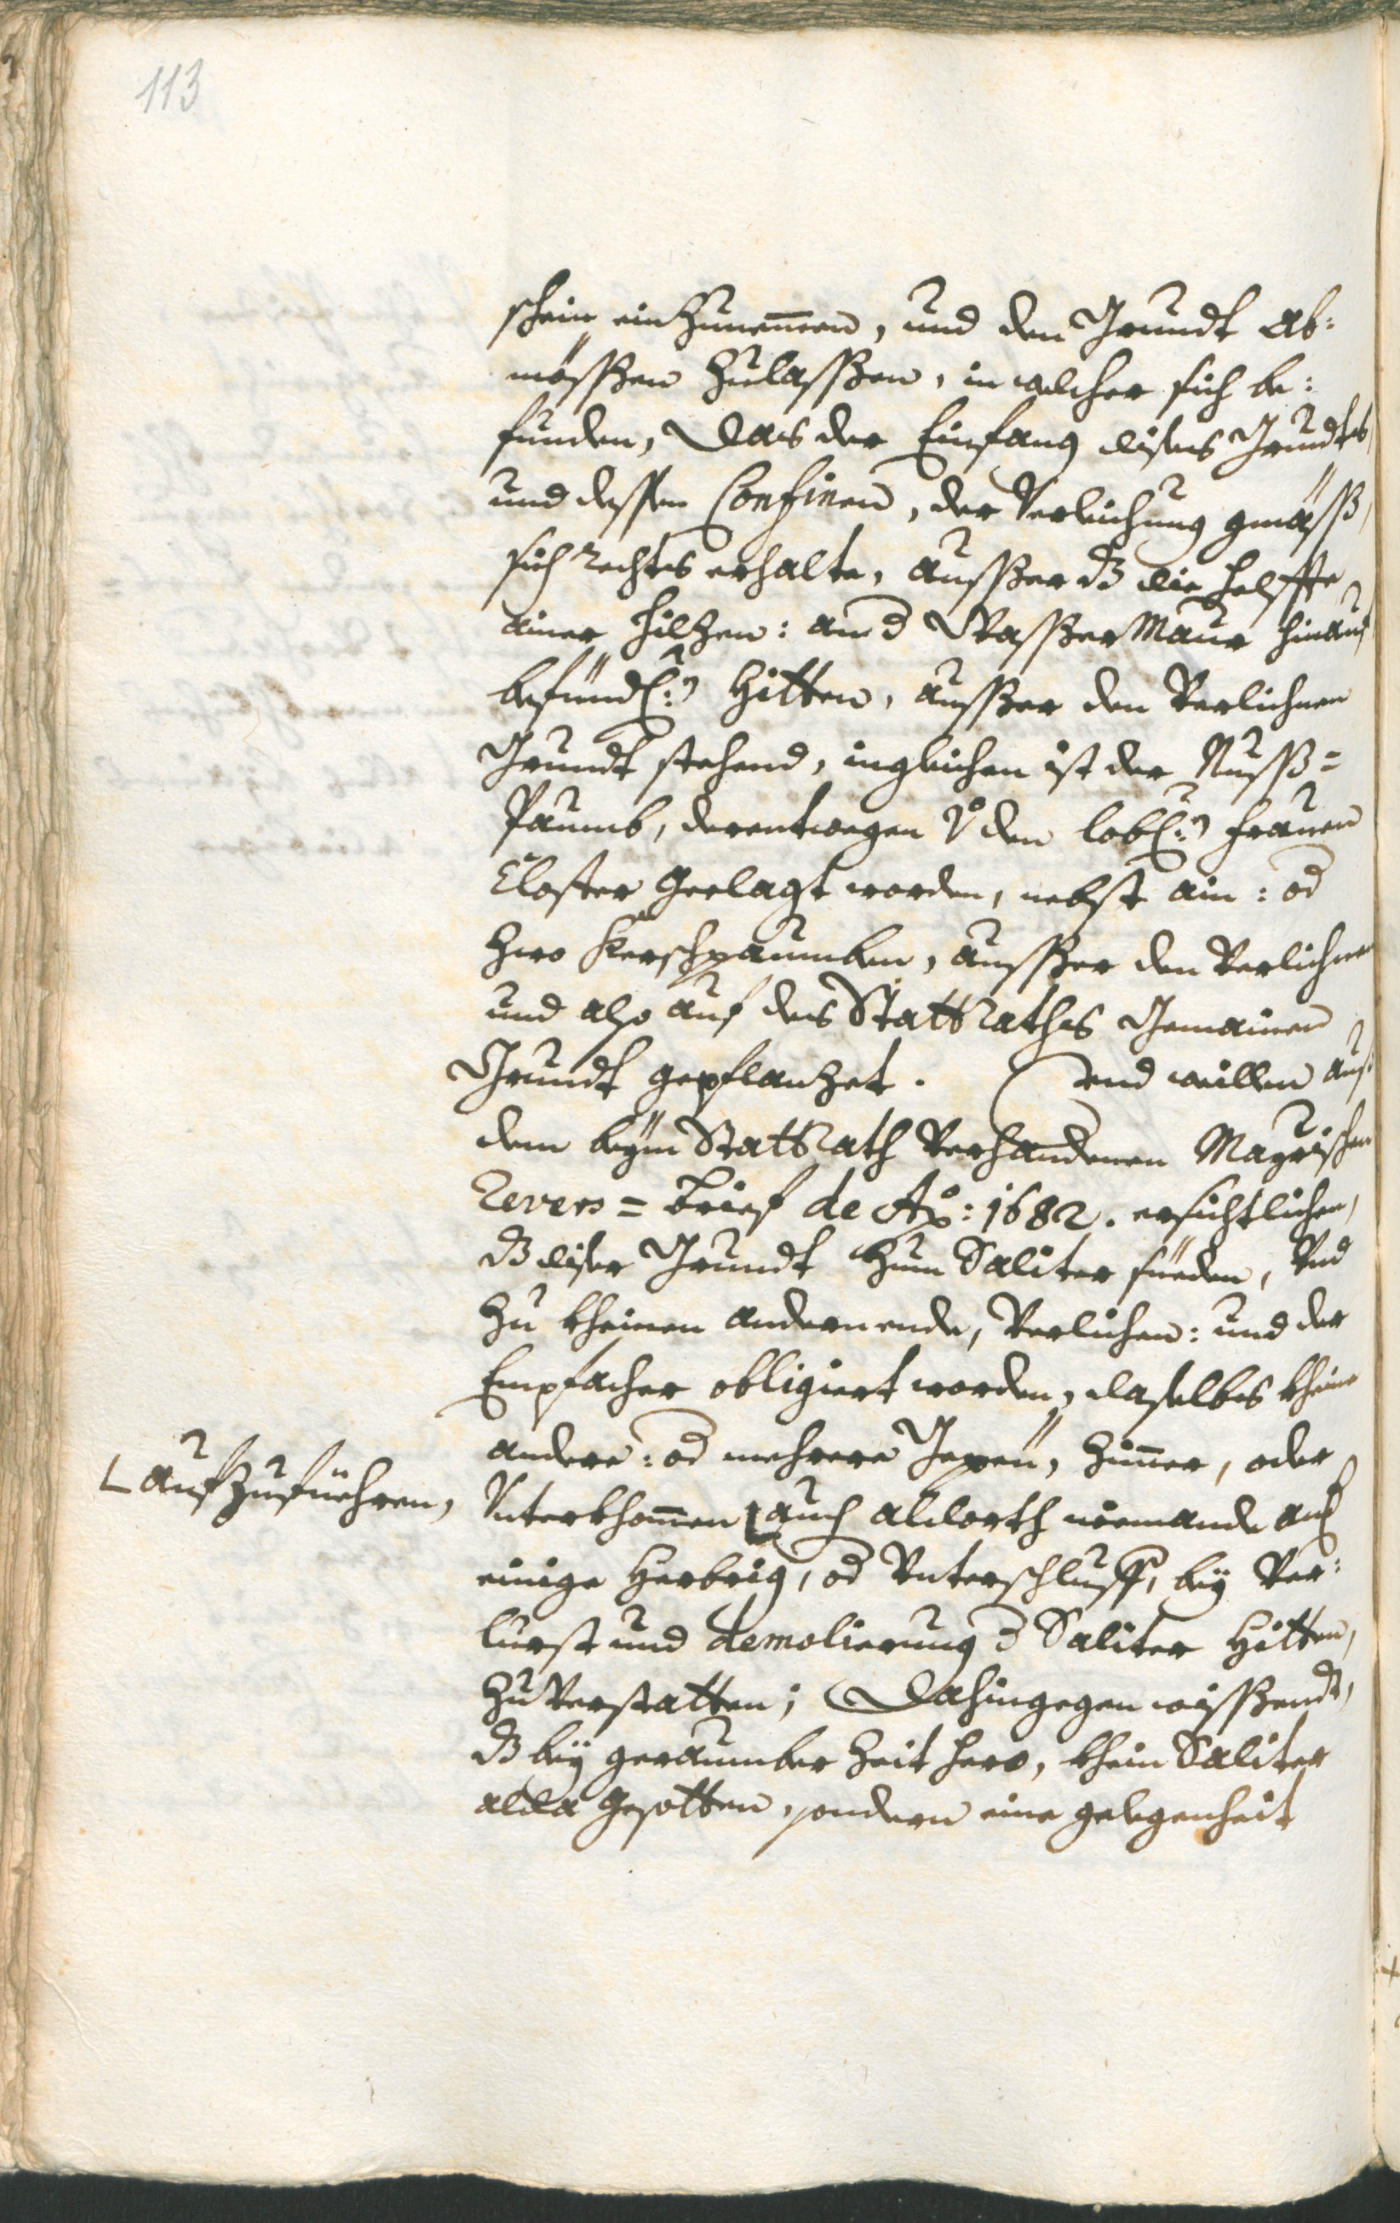 113
schein einzunemmen, und den Grundt ab:
mössßen zulassßen, in welcher sich be:
funden, Das der Einfang dises Grundts
und dessen Confinen, der Verleichung gmässß,
sich rechts erhalte, aussßer dz die helffte
ainer hilzen: an d Wassßer Maur hinaus
befündl: Hitten, ausser den Verlichnen
Grundt stehend, ingleichen ist der Nussß=
Paumb, derentwegen v den löbl: Frauen
Closter geclagt worden, nebst ain: od
zwo Kerschpaumben, aussßer den Verlichnen
und also auf des StattRaths Gemainen
Grundt gepflanzet. Und weillen aus
dem beym StattRath Verhandenen Mayrischen
Revers=Brief de Ao: 1682. ersichtlichen,
dz diser Grundt zum Saliter sueden, Und
zu kheinen andern ende, Verlichen: und der
Empfacher obligiert worden, daselbs kheine
andere: od mehrere Gepeu, Zimer, oder
Unterkhomen auch aldorth niemande auf
L aufzufüehren,
einige Herbrig, od Unterschluff, bey Ver:
lurst und demolierung d Saliter Hitten,
zu Verstatten; Dahingegen wissßendt,
dz bey geraumber Zeit hero, khein Saliter
alda gesotten, sondern eine gelegenheit